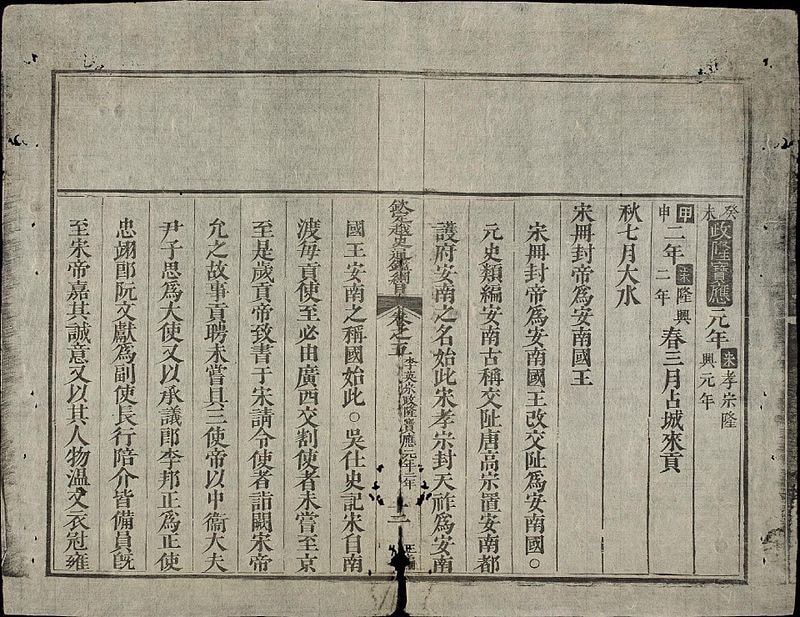 癸未政隆寶應元年宋孝宗隆興元年
甲申二年宋隆興二年春三月占城來貢
秋七月大水
宋冊封帝爲安南國王
宋冊封帝爲安南國王改交阯爲安南國○
元史類編安南古稱交阯唐高宗置安南都
護府安南之名始此宋孝宗封天祚爲安南
欽定越史通鑑綱目卷之五 李英宗政隆寶應元年二年 正編
國王安南之稱國始此○吳仕史記宋自南
渡每貢使至必由廣西交割使者未嘗至京
至是歲貢帝致書于宋請令使者詣闕宋帝
允之故事貢聘未嘗具三使帝以中衞大夫
尹子思爲大使又以承議郎李邦正爲正使
忠翊郎阮文獻爲副使長行陪介皆備員旣
至宋帝嘉其誠意又以其人物溫文衣冠雍